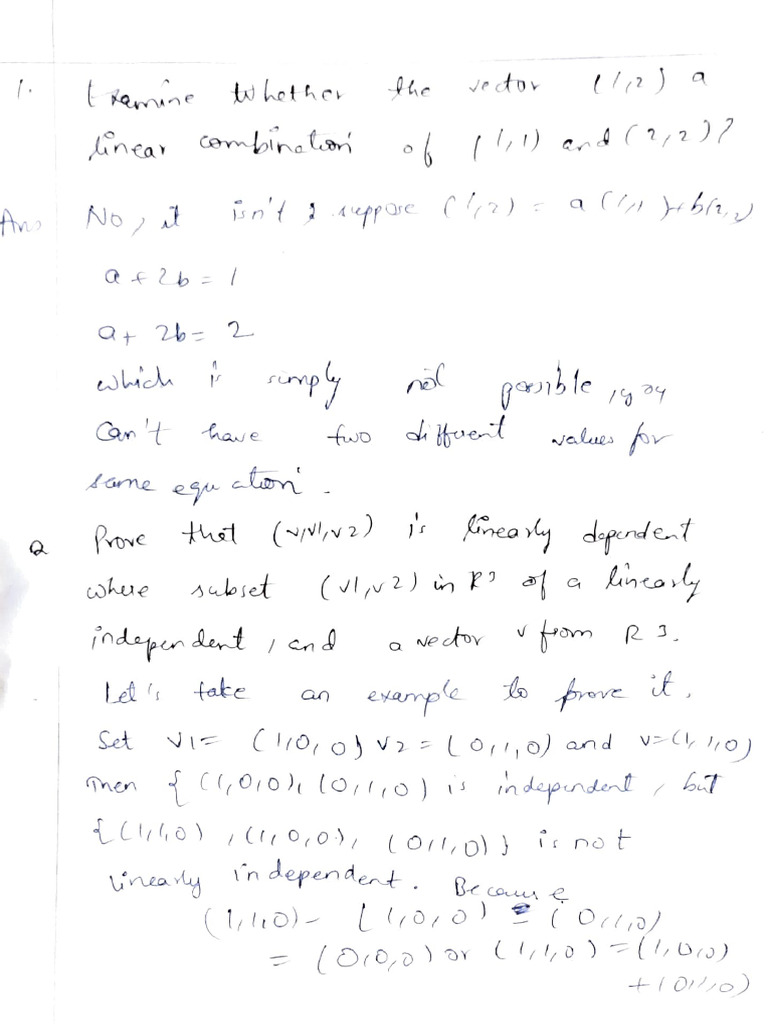 1. Examine whether the vector (1,2) a
linear combination of (1,1) and (2,2)?
Ans No, it isn't, suppose (1,2) = a(1,1)+b(2,2)
a + 2b = 1
a + 2b = 2
which is simply not possible,
Can't have two different values for
same equation.
2 Prove that (v,v1,v2) is linearly dependent
where subset (v1,v2) in R3 of a linearly
independent, and a vector v from R3.
Let's take an example to prove it.
Set v1= (1,0,0) v2 = (0,1,0) and v=(1,1,0)
Then { (1,0,0), (0,1,0) is independent, but
{(1,1,0), (1,0,0), (0,1,0)} is not
linearly independent. Because
(1,1,0) - (1,0,0) - (0,1,0)
= (0,0,0) or (1,1,0) = (1,0,0)
+ (0,1,0)